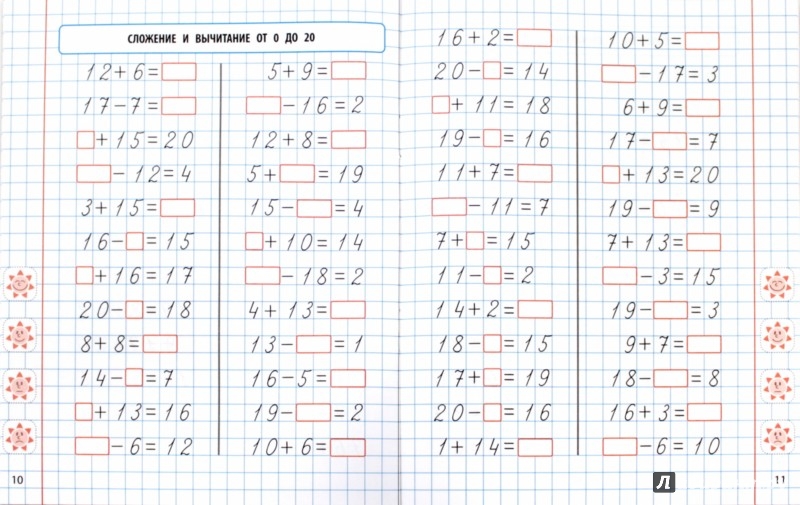 СЛОЖЕНИЕ И ВЫЧИТАНИЕ ОТ 0 ДО 20
12+6=□
17-7=□
□+15=20
□-12=4
3+15=□
16-□=15
□+16=17
20-□=18
8+8=□
14-□=7
□+13=16
□-6=12
5+9=□
□-16=2
12+8=□
5+□=19
15-□=4
□+10=14
□-18=2
4+13=□
13-□=1
16-5=□
19-□=2
10+6=□
10
16+2=□
20-□=14
□+11=18
19-□=16
11+7=□
□-11=7
7+□=15
11-□=2
14+2=□
18-□=15
17+□=19
20-□=16
1+14=□
10+5=□
□-17=3
6+9=□
17-□=7
□+13=20
19-□=9
7+13=□
□-3=15
19-□=3
9+7=□
18-□=8
16+3=□
□-6=10
11
Л